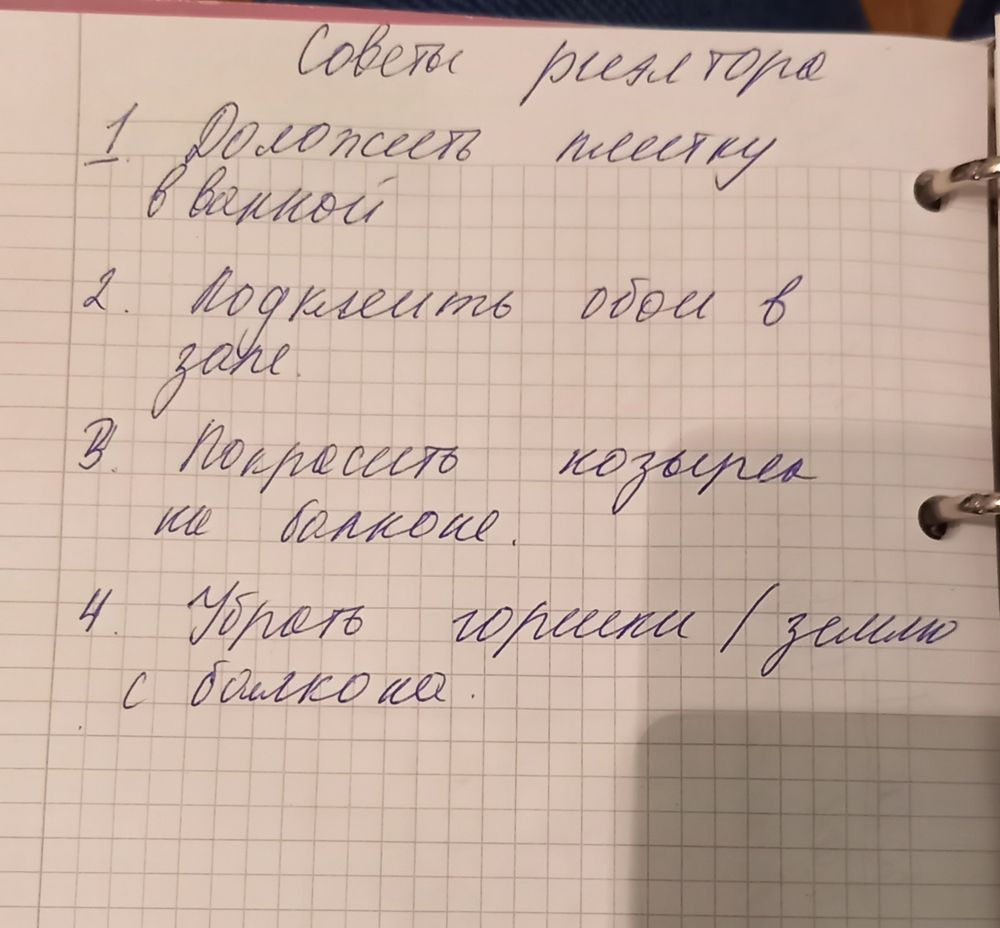 Советы риэлтора
1. Доложить плитку
в ванной
2. Подклеить обои в
зале.
3. Покрасить козырек
на балконе.
4. Убрать горшки / землю
с балкона.